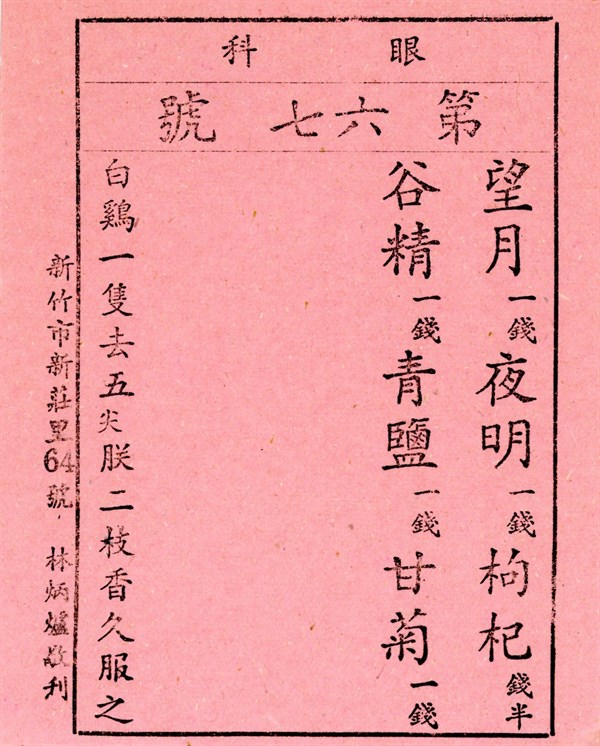 眼科
第六七號
望月一錢夜明一錢枸杞錢半
谷精一錢青鹽一錢甘菊一錢
白鷄一隻去五尖朕二枝香久服之
新竹市新莊里64號 林炳爐敬刋